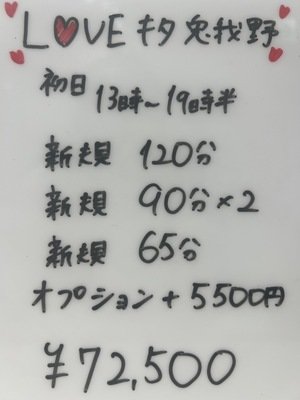 L♥VE キタ兎我野
初日 13時～19時半
新規 120分
新規 90分×2
新規 65分
オプション+5500円
¥72,500